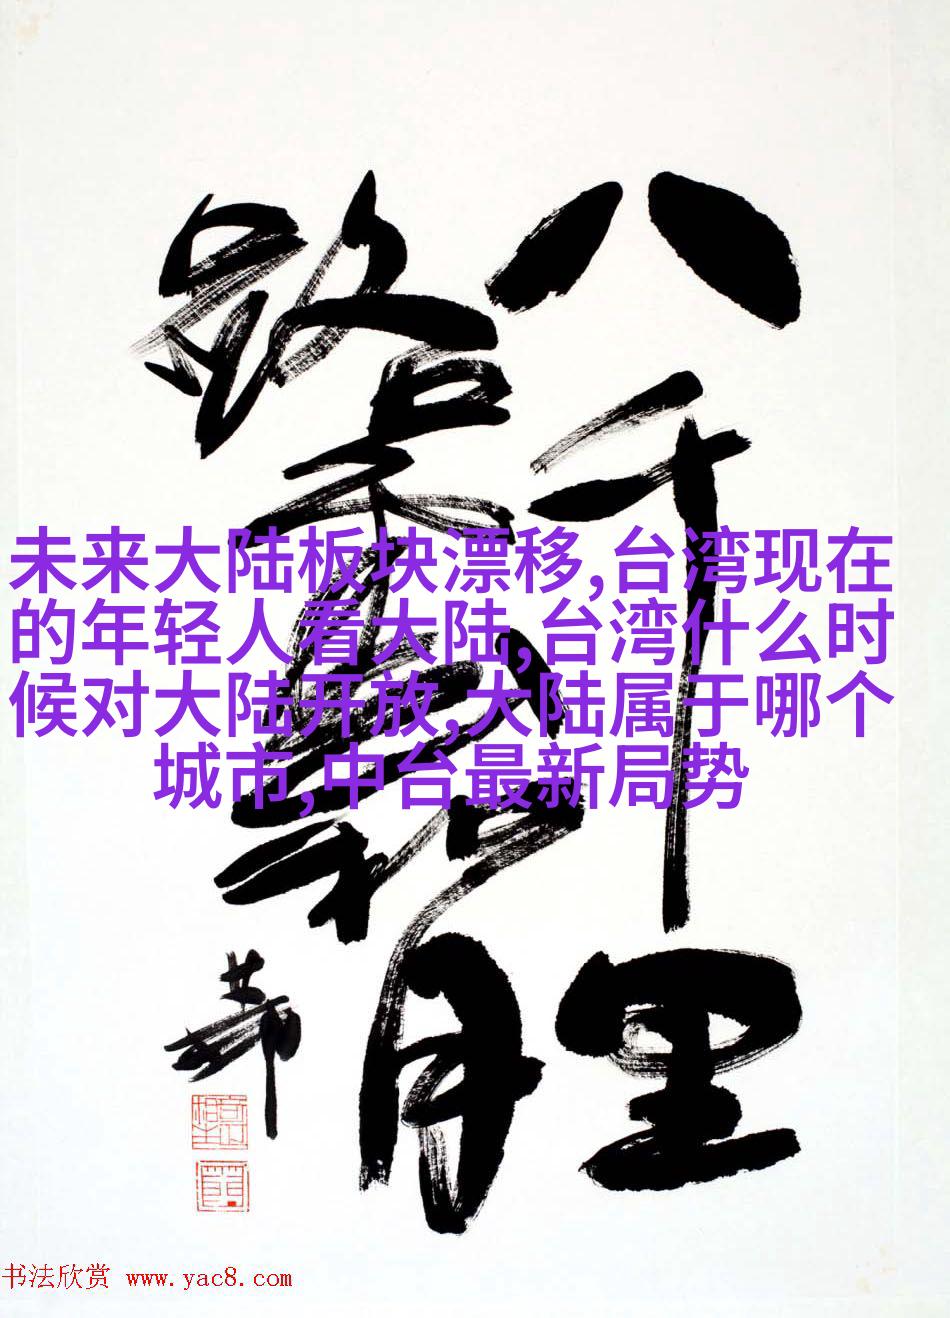 八千里
路云和月
未来大陆板块漂移,台湾现在
的年轻人看大陆,台湾什么时
候对大陆开放,大陆属于哪个
城市,中台最新局势
书法欣赏 www.yac8.com